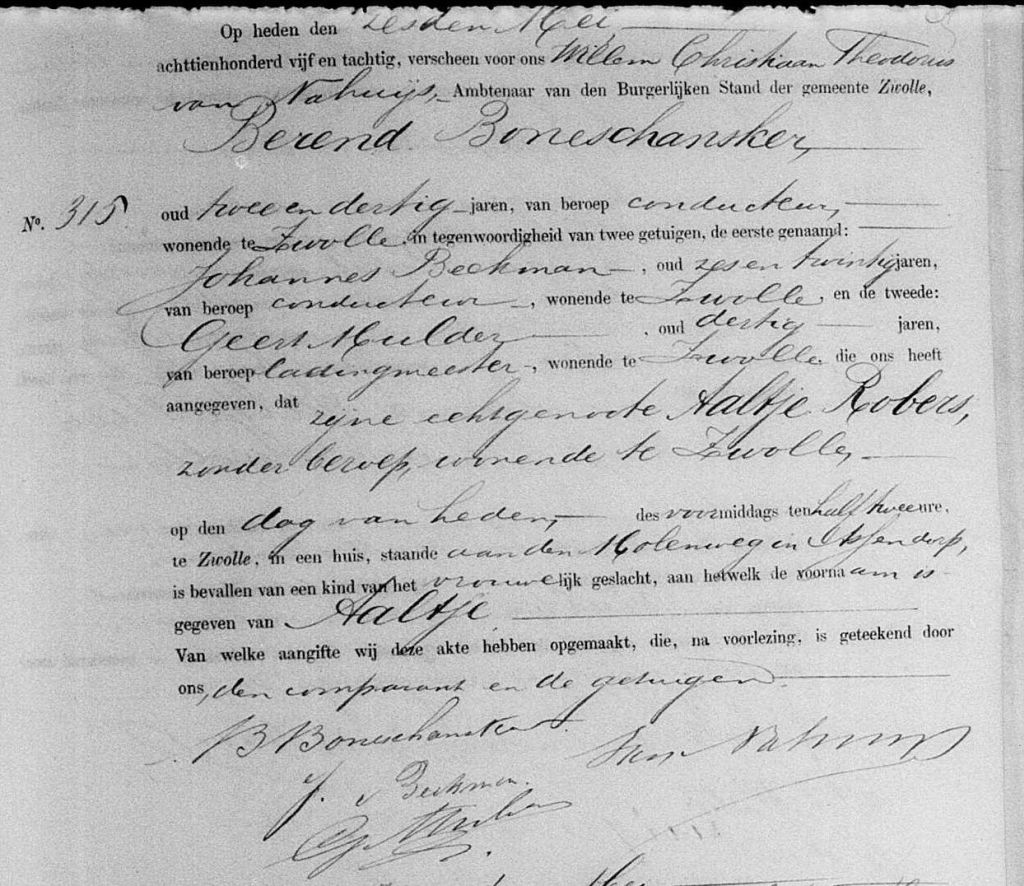 Op heden den zesden Mei,
achttienhonderd vijf en tachtig, verscheen voor ons Willem Christiaan Theodorus
van Nahuijs, Ambtenaar van den Burgerlijken Stand der gemeente Zwolle,
Berend Boneschansker,
No. 315
oud twee en dertig jaren, van beroep conducteur,
wonende te Zwolle, in tegenwoordigheid van twee getuigen, de eerste genaamd:
Johannes Beekman, oud zes en twintig jaren,
van beroep conducteur, wonende te Zwolle, en de tweede:
Geert Mulder, oud dertig jaren,
van beroep ladingmeester, wonende te Zwolle die ons heeft
aangegeven, dat zijne echtgenoote Aaltje Robers,
zonder beroep, wonende te Zwolle,
op den dag van heden, des voormiddags ten half twee ure,
te Zwolle, in een huis, staande aan den Molenweg in Assendorp,
is bevallen van een kind van het vrouwelijk geslacht, aan hetwelk de voornaam is
gegeven van Aaltje.
Van welke aangifte wij deze akte hebben opgemaakt, die, na voorlezing, is geteekend door
ons, den comparant en de getuigen.
B Boneschansker
van Nahuijs
J. v Beekman.
G Mulder